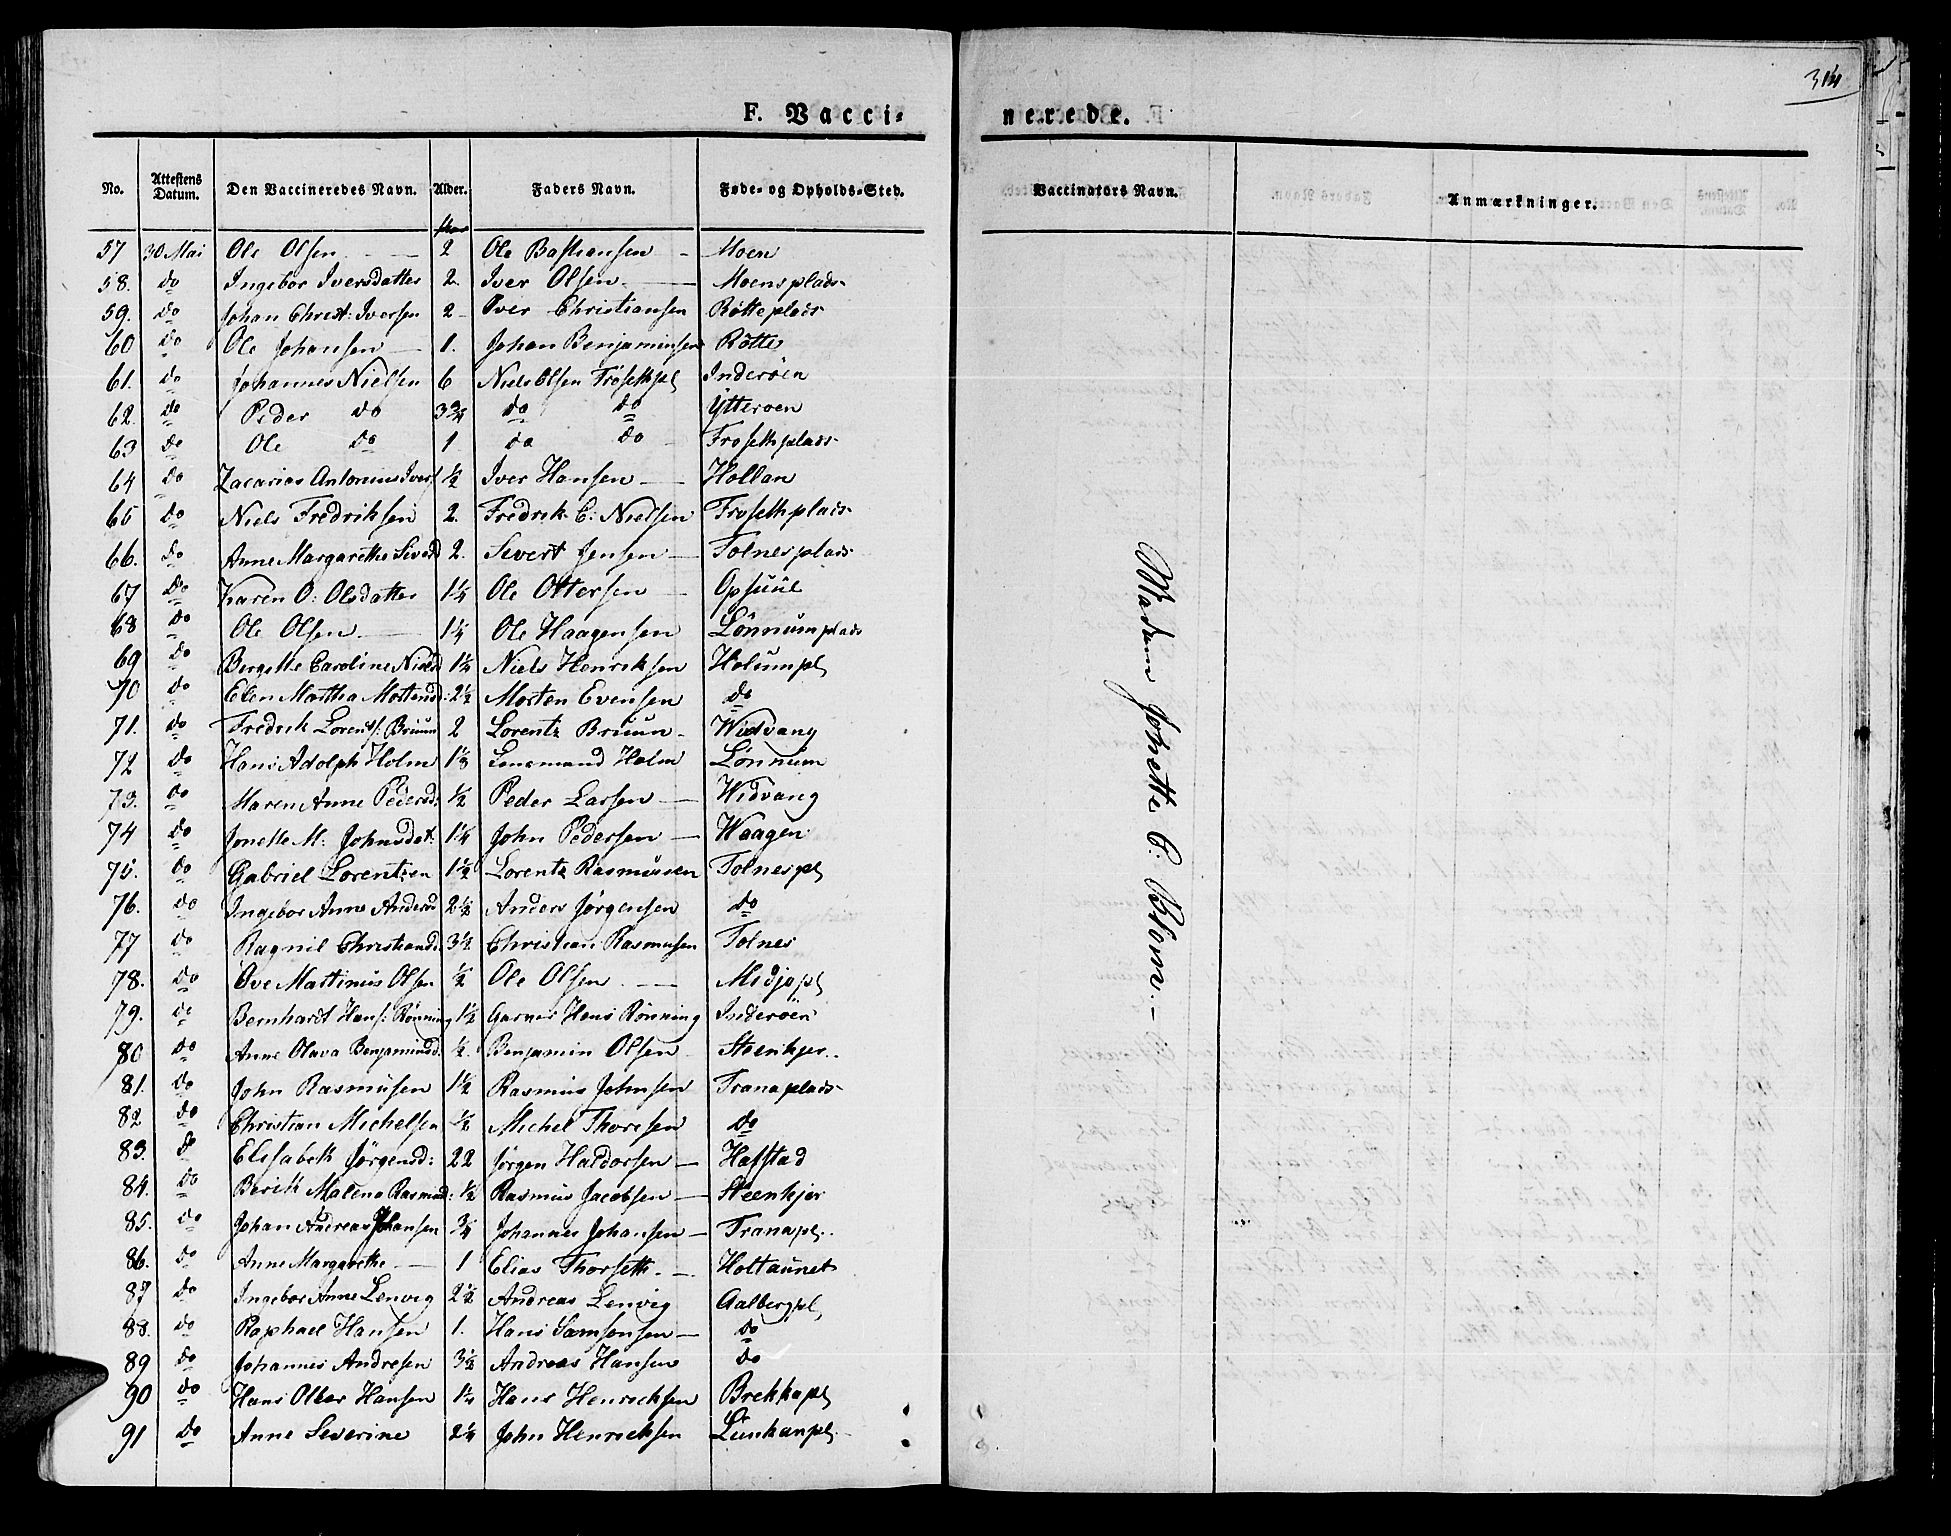 314
F. Vacci-
nerede.
No. Attestens Datum. Den Vaccineredes Navn. Alder. Faders Navn. Føde- og Opholds-Sted. Vaccinators Navn. Anmærkninger.
57 30 Mai Ole Olsen 2 Ole Basthensen - Moen
58. do Ingebor Iversdatter 2. Iver Olsen Moensplads
59. do Johan Christ: Iversen 2 Iver Christiansen Røtteplads
60 do Ole Johansen 1. Johan Benjaminsen Røtte
61. do Johannes Nielsen 6 Niels Olsen Frøsethpl Inderøen
62. do Peder do 3¾ do do Ytterøen
63 do Ole do 1 do do Frosethplads
64 do Zacarias Antonius Ivers ½ Iver Hansen Hollan
65 do Niels Fredriksen 2. Fredrik C: Nielsen Frosethplads
66. do Anne Margarethe Sivertd 2. Sivert Jensen Folnesplads
67 do Karen O: Olsdatter 1¼ Ole Ottersen Opsuul
68 do Ole Olsen 1¼ Ole Haagensen Lønnumplads
69 do Bergitte Caroline Nielsd 1¼ Niels Henriksen Holumpl
70 do Elen Martha Mortensd: 2½ Morten Evensen do
71. do Fredrik Lorents: Bruun 2 Lorentz Bruun Widvang
72 do Hans Adolph Holm 1⅓ Lensmand Holm Lønnum
73. do Maren Anne Pedersd: ½ Peder Larsen Widvang
74 do Jonette M: Johnsdat: 1¼ John Pedersen Waagen
75. do Gabriel Lorentzen 1½ Lorentz Rasmussen Folnespl
76. do Ingebor Anne Andersd 2½ Anders Jørgensen do
77 do Ragnil Christiansd: 3½ Christian Rasmusen Folnes
78. do Ove Martinus Olsen ½ Ole Olsen Midjopl
79. do Bernhardt Hans: Rønning 1½ Garver Hans Rønning Inderøen
80 do Anne Olava Benjaminsd. ½. Benjamin Olsen Steenkjer
81. do John Rasmusen 1½ Rasmus Johnsen Tranaplads
82 do Christian Michelsen ½ Michel Thoresen do
83. do Elisabeth Jørgensd: 22 Jørgen Haldorsen Hafstad
84. do Berith Malena Rasmusd: ½ Rasmus Jacobsen Steenkjer
85. do Johan Andreas Johansen ¾ Johannes Johansen Tranapl.
86. do Anne Margrethe 1 Elias Thorseth Holtaunet
87 do Ingebor Anne Lenvig 2½ Andreas Lenvig Aalbergpl
88. do Raphael Hansen 1. Hans Samsonsen do
89 do Johannes Andresen 3½ Andreas Hansen do
90 do Hans Oluf Hansen 1¼ Hans Henricksen Brekkapl
91 do Anne Severine 2¼ John Henricksen Lunkanpl
Madam Johnette C: Blom.